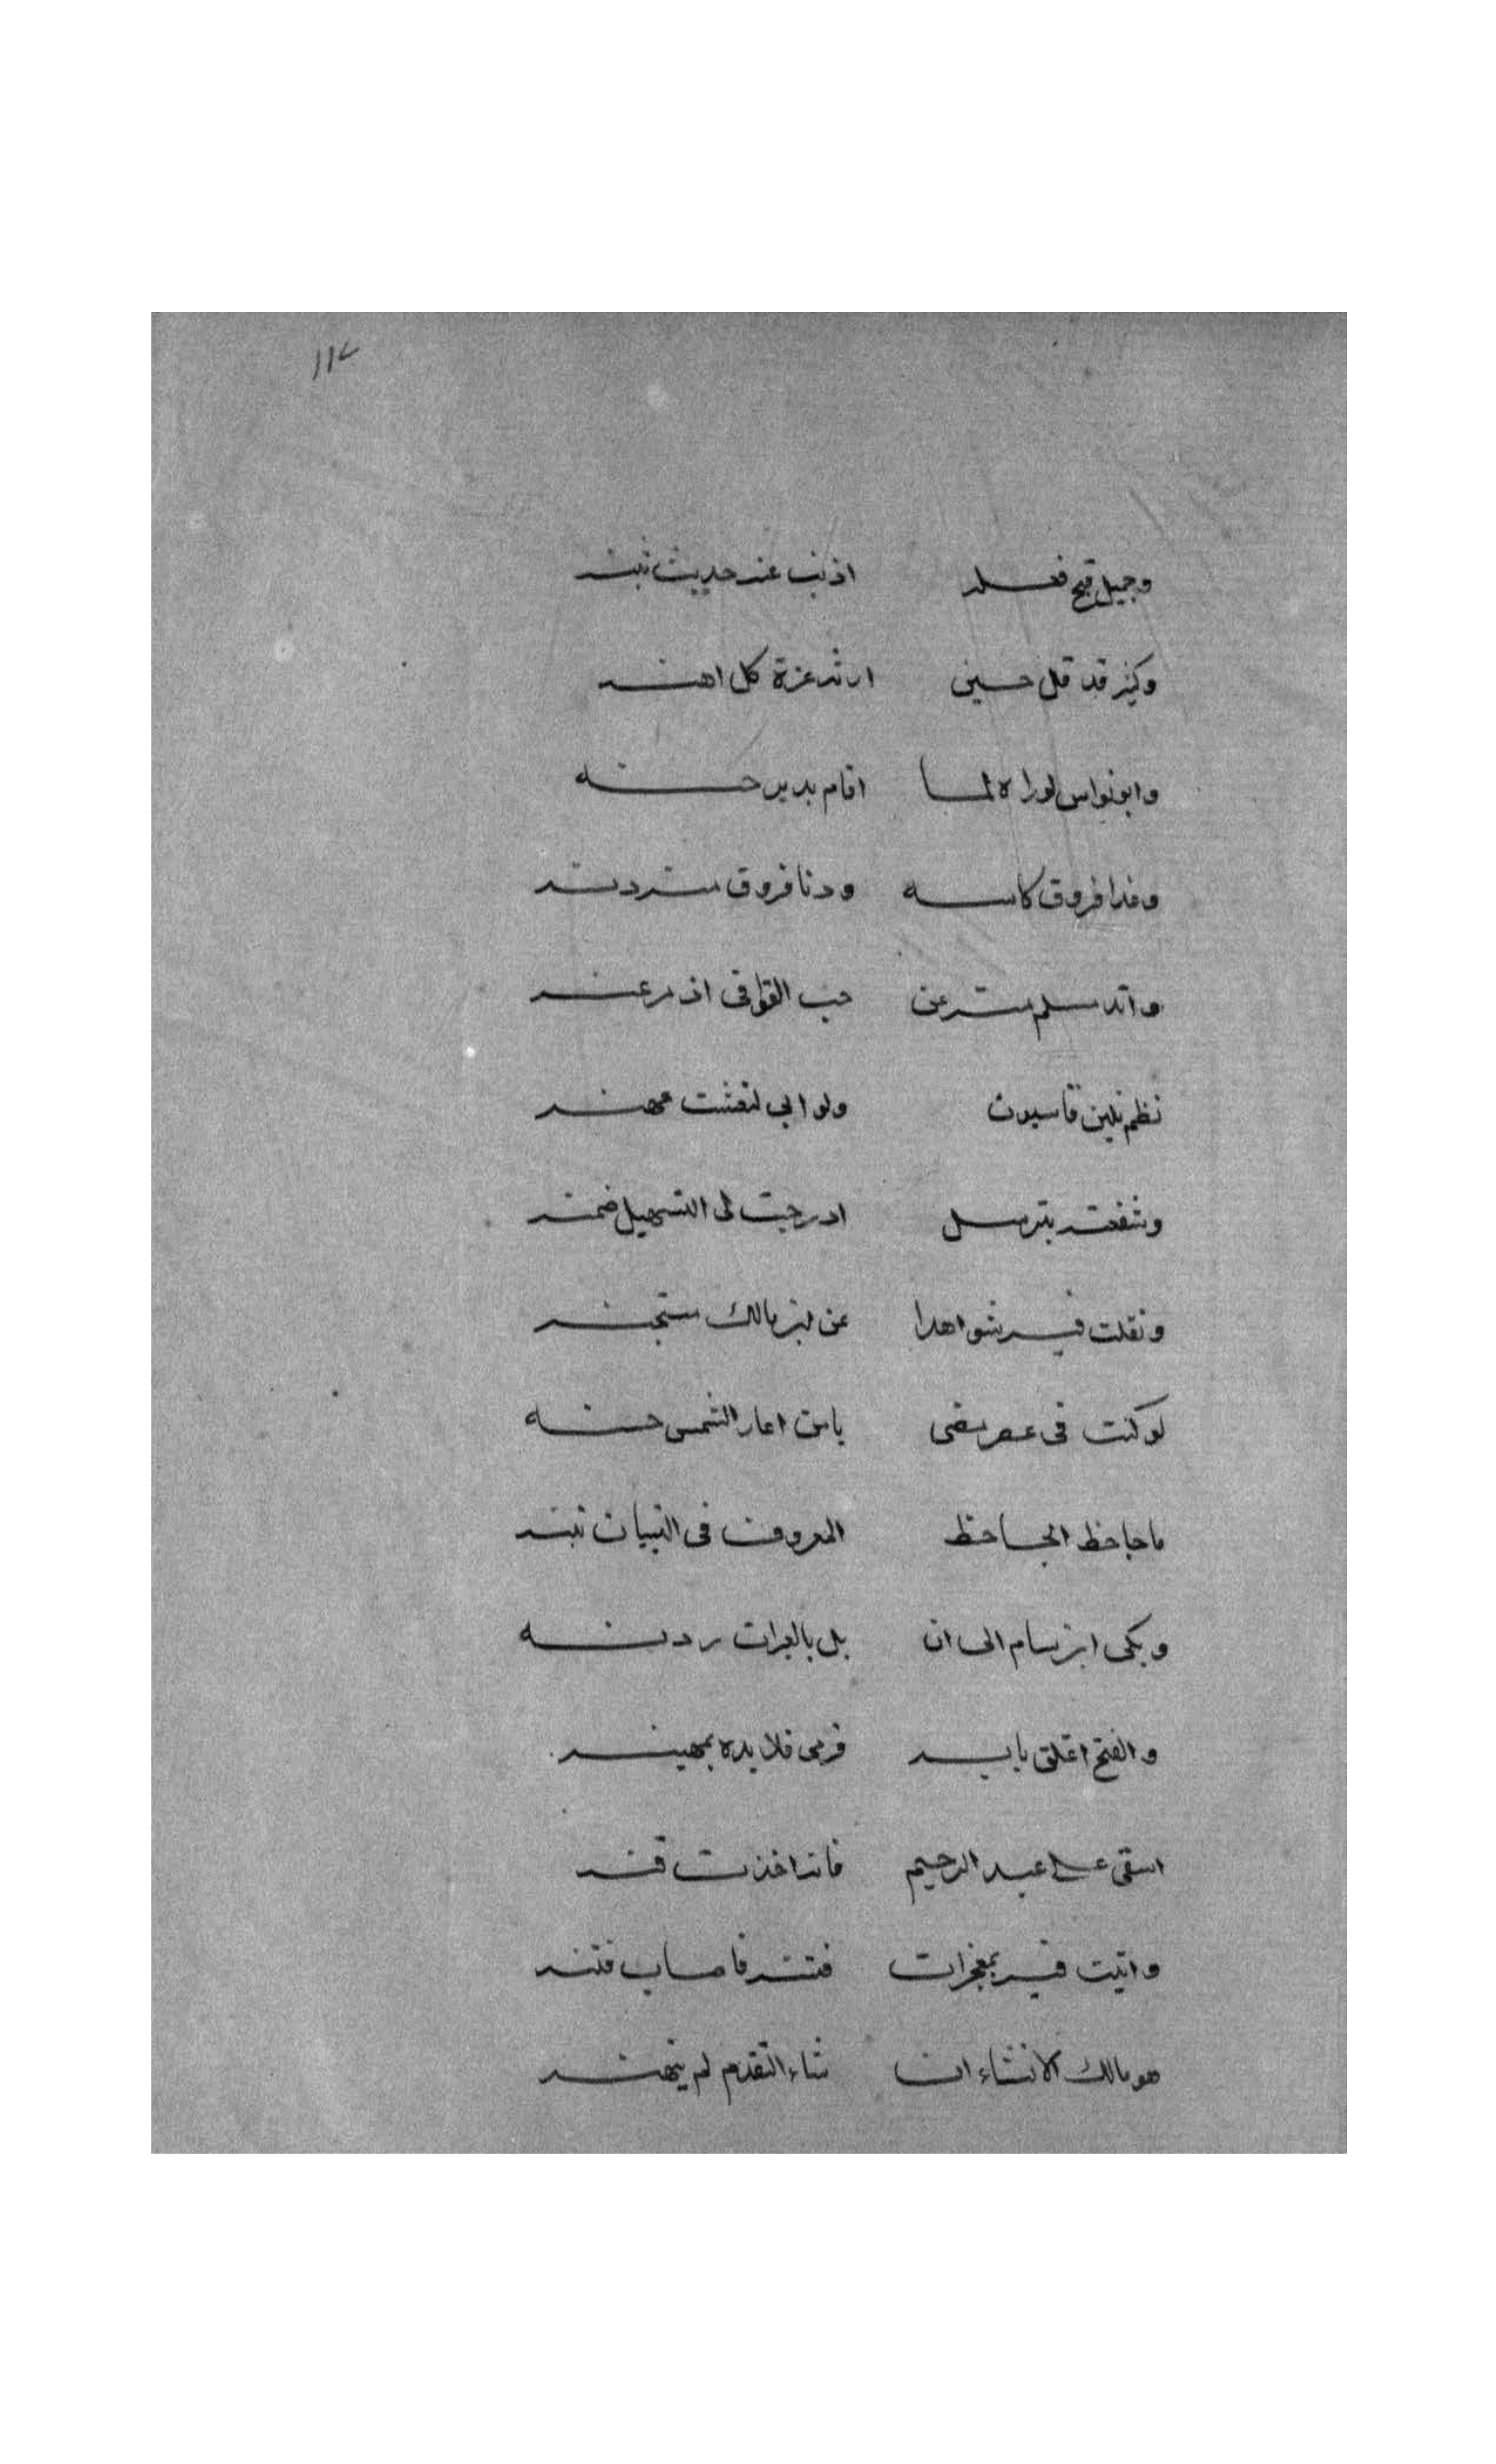 ١١٢
وجميل قبح فعله اذ نب عنه حديث بثنه
وكثير قد قل حسين ارثه عزة كل اهنه
وابو نواس لو راه لما اقام بدير حنه
وغدا فروق كاسه ودنا فروق منه دنه
واتاه مسلم منه عن حب القوافى اذ
نظم يلين قاسيون ولو ابى لنعشت عهنه
وشفعته بترسل ادرجت لى التسهيل ضمنه
ونقلت فيه شواهدا عن ابن مالك مستجنه
لو كنت فى عصر مضى يامن اعار الشمس حسنه
ما جاحظ الجاحظ المعروف فى التبيان تبنه
وبكى ابن بسام الى ان بل بالعبرات ردنه
والفتح اغلق بابه فرمى قلايده بمهينه
اسقى على عبد الرحيم فانه اخذت
واتيت فيه بمعجزات فتنه فاصاب فتنه
هو مالك الانشاء ان شاء التقدم لم